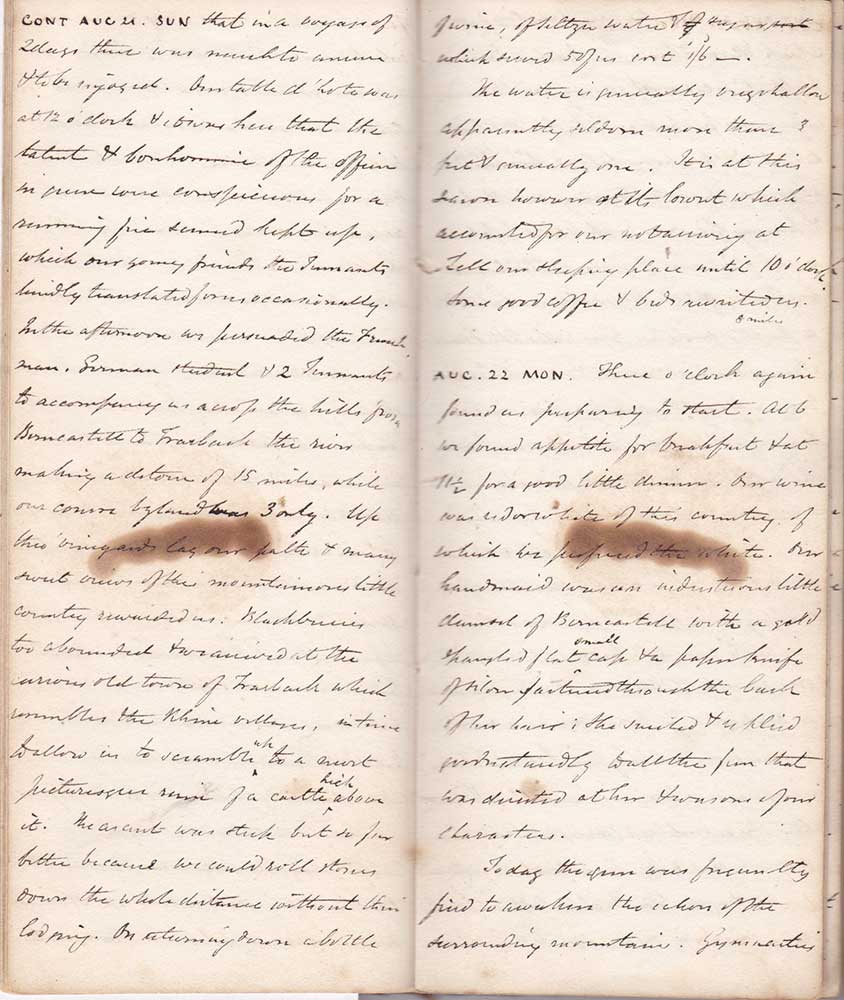 CONT AUG 21. SUN that in a voyage of
2 days there was much to amuse
& to be enjoyed. Our table d'hote was
at 12 o'clock & it was here that the
talent & bonhommie of the officer
in guerre were conspicuous for a
running fire seemed kept up,
which our young friends the Tennants
kindly translated for us occasionally.
In the afternoon we persuaded the French
man. German student & 2 Tennants
to accompany us across the hills from
Berncastell to Trarbach the river
making a detour of 15 miles, while
our course by land was 3 only. Up
thro' vineyards lay our path & many
sweet views of this mountainous little
country rewarded us. Blackberries
too abounded & we arrived at the
curious old town of Trarbach which
resembles the Rhine villages, in time
to allow us to scramble up to a most
picturesque ruin of a castle high above
it. The ascent was steep but so far
better because we could roll stones
down the whole distance without their
lodging. On returning down a bottle
of wine, of seltzer water & of sugar
which served 5 of us cost 1/6 —.
The water is generally very shallow
apparently seldom more than 3
feet & generally one. It is at this
season however at its lowest which
accounted for our not arriving at
Zell our sleeping place until 10 o'clock.
Some good coffee & beds awaited us.
8 miles
AUG. 22 MON. Three o'clock again
found us preparing to start. At 6
we found appetite for breakfast & at
11½ for a good little dinner. Our wine
was red or white of this country, of
which we preferred the white. Our
handmaid was an industrious little
damsel of Berncastell with a gold
spangled flat small cap & a paper knife
of silver fastened through the back
of her hair; she smiled & replied
goodnaturedly to all the fun that
was directed at her & was one of our
characters.
Today the gun was frequently
fired to awaken the echoes of the
surrounding mountains. Gymnastics